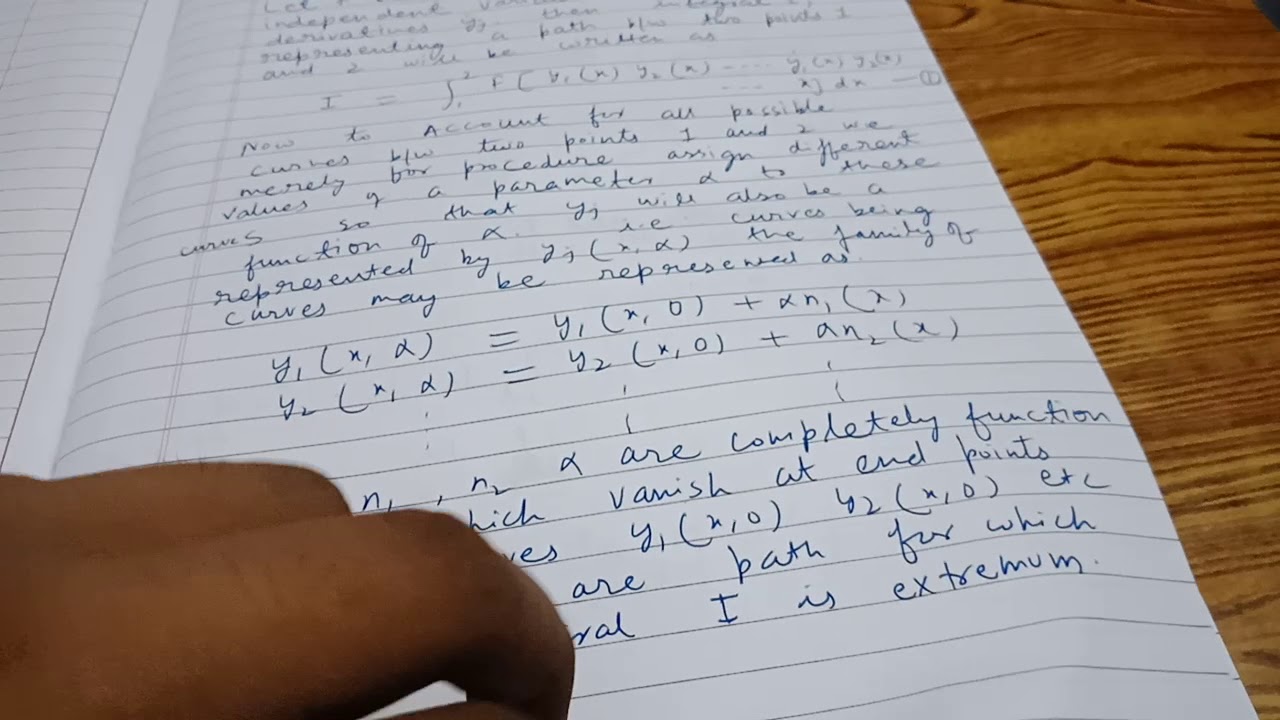 Let
independent
derivatives yj then integral
representing a path b/w two points 1
and 2 will be written as
I = ∫₁² f [ y₁(x) y₂(x) ---- ẏ₁(x) ẏ₂(x)
... x] dx — ①
Now to Account for all possible
curves b/w two points 1 and 2 we
merely for procedure assign different
values of a parameter α to these
curves so that yj will also be a
function of α. i.e curves being
represented by yj (x, α) the family of
curves may be represened as.
y₁ (x, α) = y₁ (x, 0) + αn₁ (x)
y₂ (x, α) = y₂ (x, 0) + αn₂ (x)
n₁, n₂ α are completely function
hich vanish at end points
ves y₁ (x,0) y₂ (x,0) etc
are path for which
ral I is extremum.